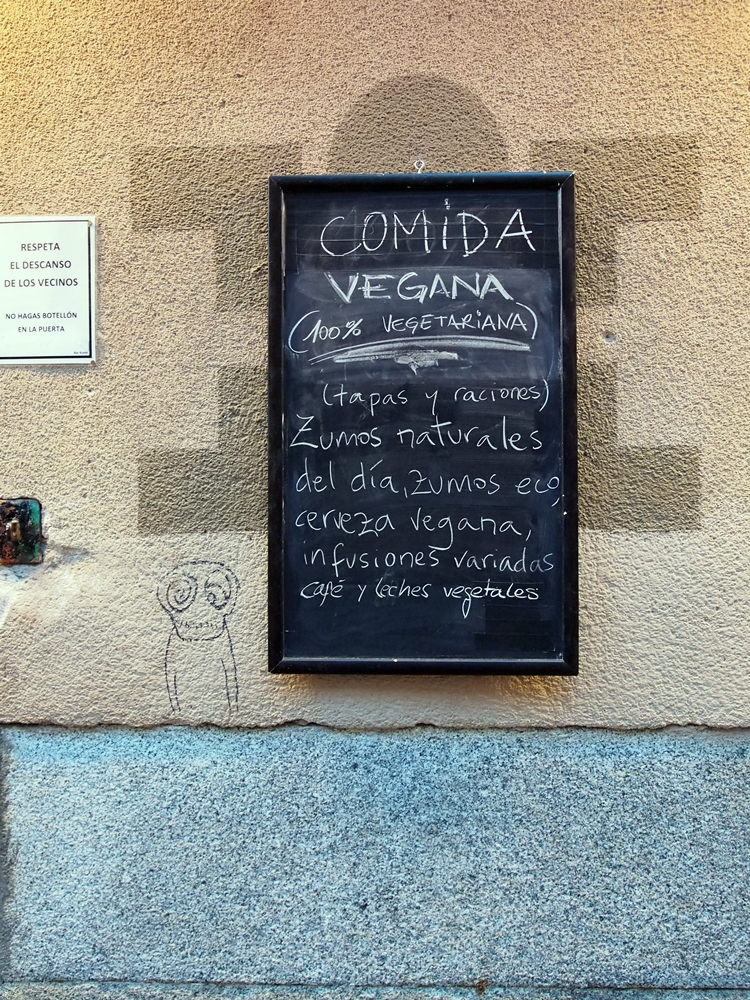 RESPETA
EL DESCANSO
DE LOS VECINOS
NO HAGAS BOTELLÓN
EN LA PUERTA
COMIDA
VEGANA
(100% VEGETARIANA)
(tapas y raciones)
Zumos naturales
del día, zumos eco,
cerveza vegana,
infusiones variadas
café y leches vegetales